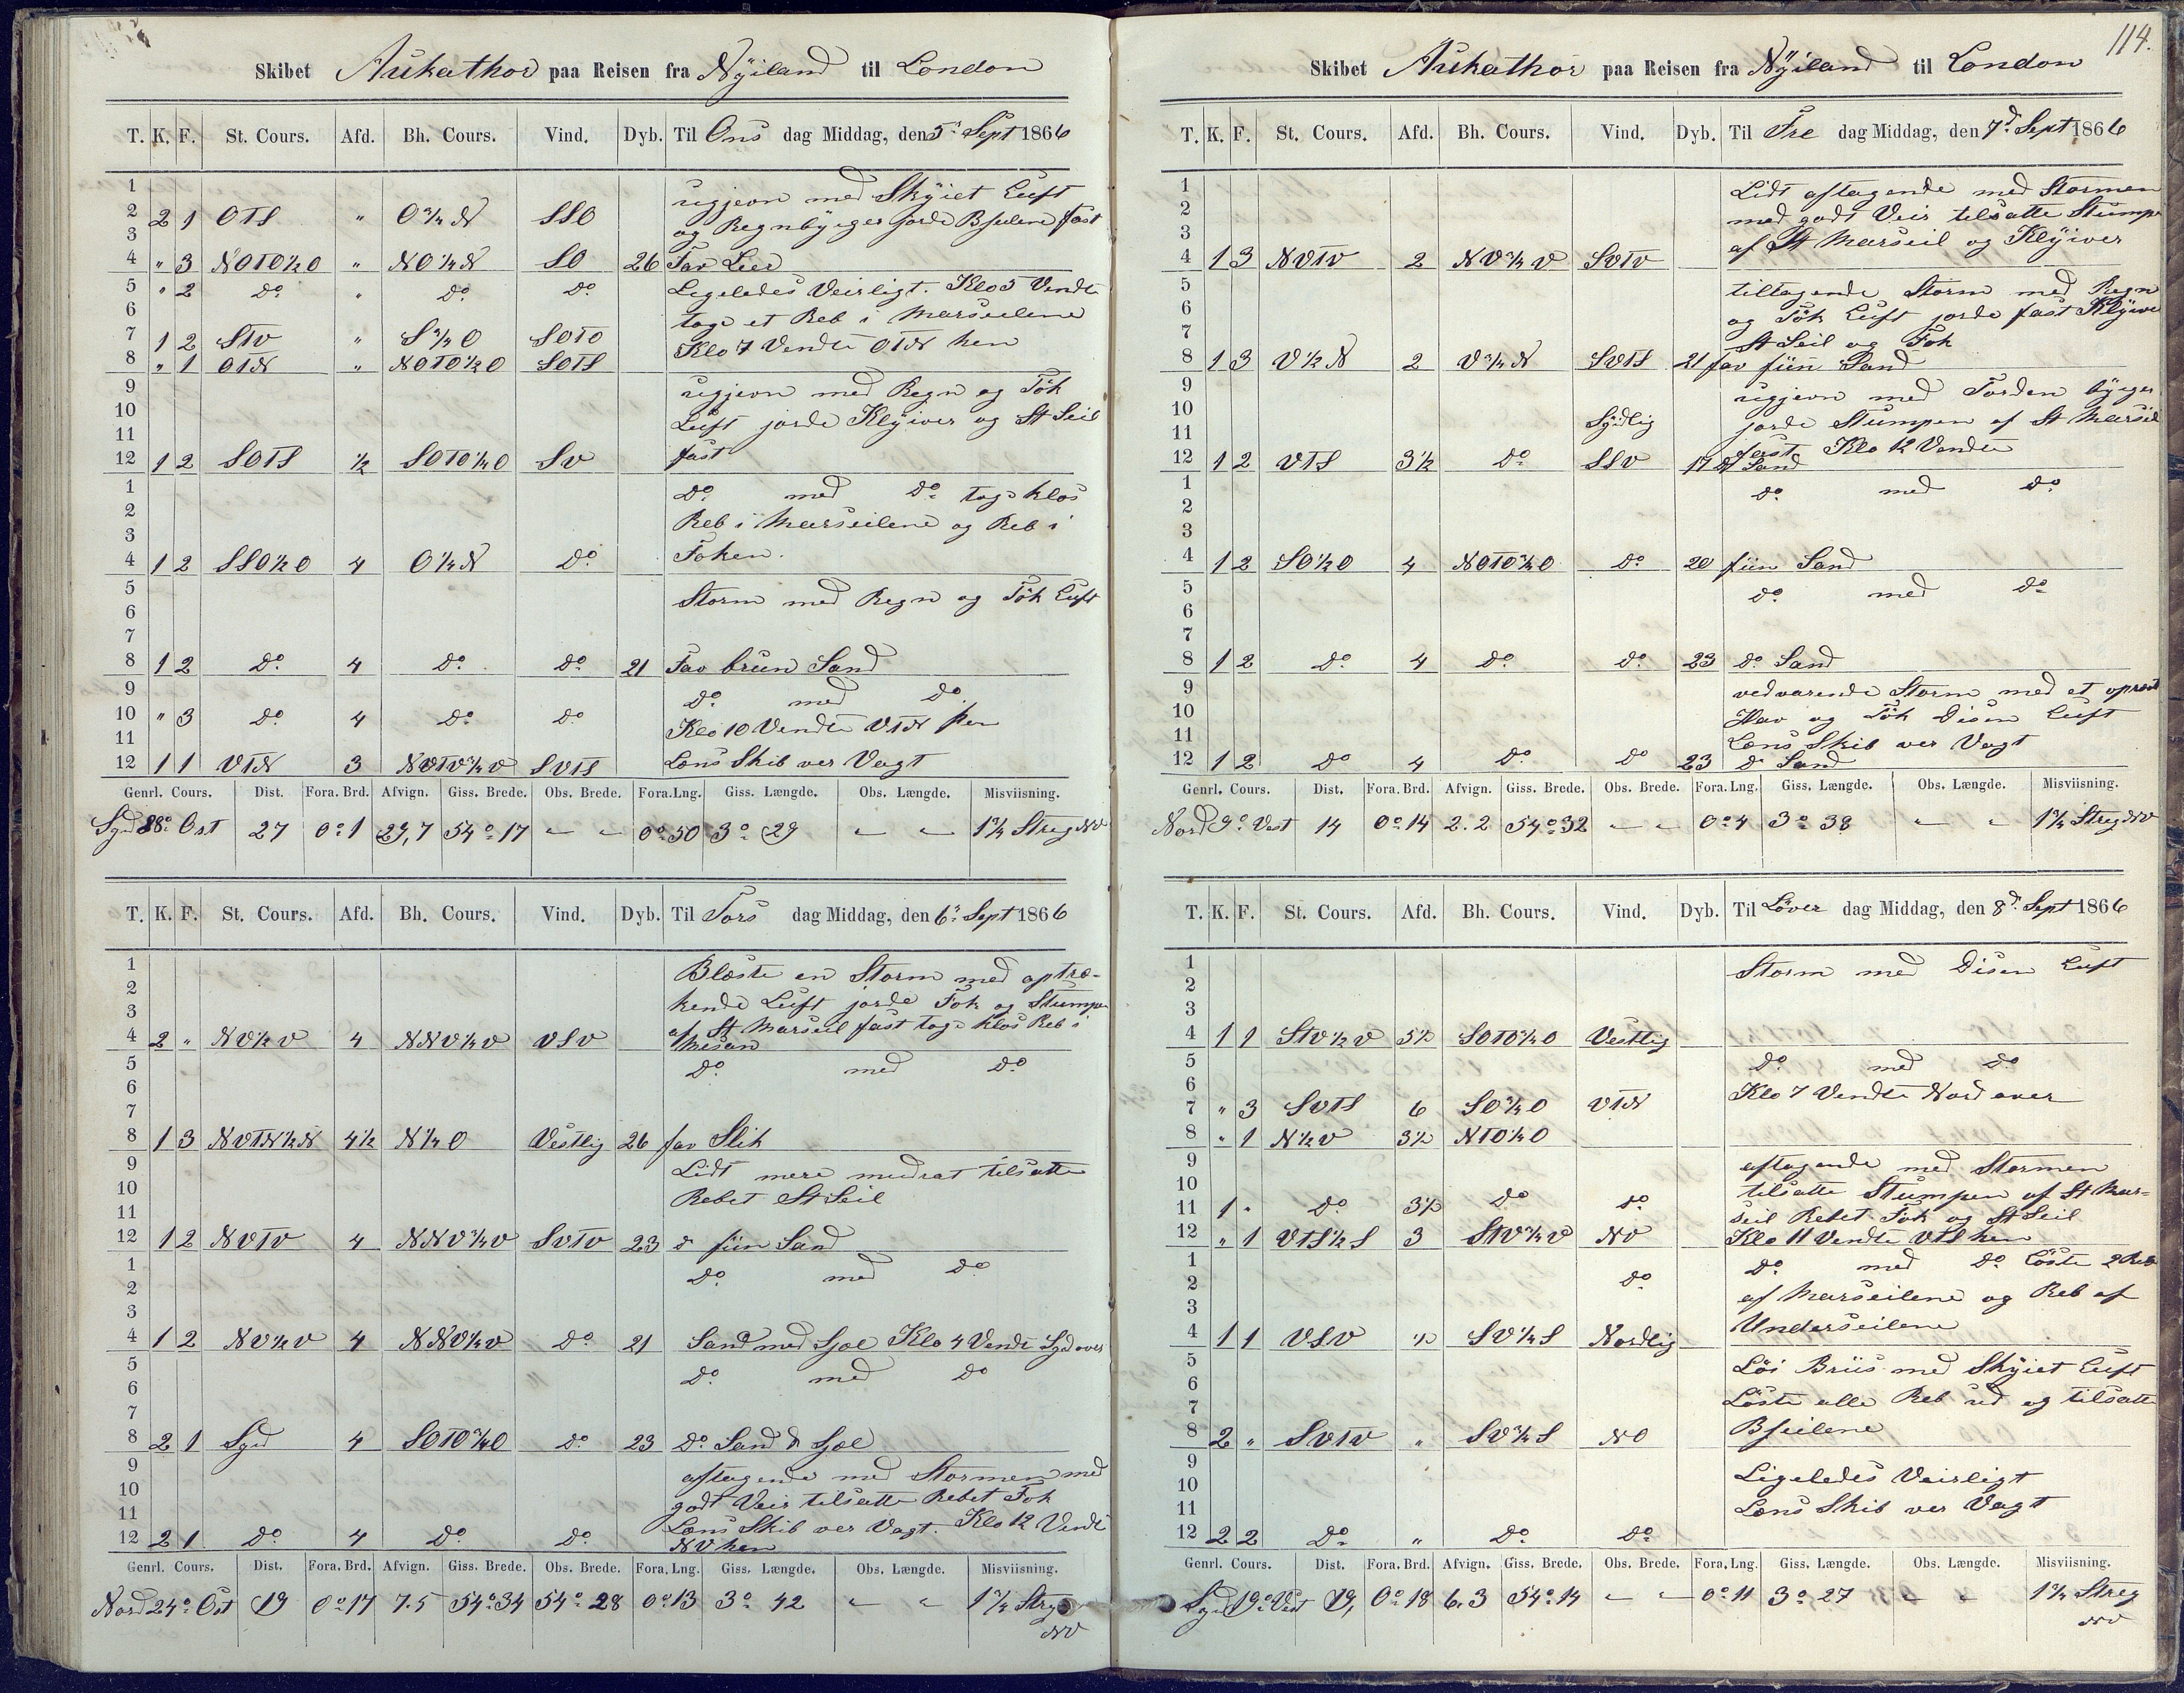 Skibet Aukathor paa Reisen fra Nÿiland til London
T. K. F. St. Cours. Afd. Bh. Cours. Vind. Dyb. Til Ons dag Middag, den 5' Sept 1866
1 ugjevn med Skÿiet Luft
2 2 1 OTS " O¾N SSO og Regnbÿger jorde Bseilene fast
3
4 " 3 NOTO½O " NO¼N SO 26 Fav Leer
5 " 2 do " do do Ligeledes Veirligt. Klo 5 Vendte
6 toge et Reb i Marseilene
7 1 2 STV " S¾O SOTO Klo 7 Vendte OTN hen
8 " 1 OTN " NOTO½O SOTS
9 ugjevn med Regn og Tÿk
10 Luft jorde Klÿiver og St Seil
11 fast
12 1 2 SOTS ½ SOTO¼O SV
1 do med do toge klos
2 Reb i Marseilene og Reb i
3
4 1 2 SSO½O 4 O¼N do Foken.
5 Storm med Regn og Tÿk Luft
6
7
8 1 2 do 4 do do 21 Fav brun Sand
9 do med do
10 " 3 do 4 do do Klo 10 Vendte VTN hen
11
12 1 1 VTN 3 NVTV¾V SVTS Lens Skib ver Vagt
Genrl. Cours. Dist. Fora. Brd. Afvign. Giss. Brede. Obs. Brede. Fora. Lng. Giss. Længde. Obs. Længde. Misviisning.
Syd 88° Ost 27 0° 1 29,7 54° 17 " " 0° 50 3° 29 " " 1¾ Streg NV
T. K. F. St. Cours. Afd. Bh. Cours. Vind. Dyb. Til Tors dag Middag, den 6' Sept 1866
1 Blæste en Storm med optræ-
2 kende Luft jorde Fok og Stumpe
3 af St Marseil fast toge klos Reb i
4 2 " NV½V 4 NNV½V VSV Mesan
5 do med do
6
7
8 1 3 NVTN½N 4½ N¼O Vestlig 26 fav Slik
9 Lidt mere modrat tilsatte
10 Rebet St Seil
11
12 1 2 NVTV 4 NNV¾V SVTV 23 do fiin Sand
1 do med do
2
3
4 1 2 NV½V 4 NNV½V do 21 Sand med Sjæl Klo 4 Vendt Syd over
5 do med do
6
7
8 2 1 Syd 4 SOTO¾O do 23 do Sand & Sjæl
9 aftagende med Stormen med
10 godt Veir tilsatte Rebet Fok
11 Lens Skib ver Vagt. Klo 12 Vendt
12 2 1 do 4 do do NV hen
Genrl. Cours. Dist. Fora. Brd. Afvign. Giss. Brede. Obs. Brede. Fora. Lng. Giss. Længde. Obs. Længde. Misviisning.
Nord 24° Ost 19 0° 17 7.5 54° 34 54° 28 0° 13 3° 42 " " 1¾ Streg
NV
114.
Skibet Aukathor paa Reisen fra Nÿiland til London
T. K. F. St. Cours. Afd. Bh. Cours. Vind. Dyb. Til Fre dag Middag, den 7d Sept 1866
1 Lidt aftagende med Stormen
2 med godt Veir tilsatte Stumpe
3 af St Marseil og Klÿiver
4 1 3 NVTV 2 NV¾V SVTV
5 tiltagende Storm med Regn
6 og Tÿk Luft jorde fast Klÿiver
7 St Seil og Fok
8 1 3 V½N 2 V¾N SVTS 21 fav fiin Sand
9 ugjevn med Torden bÿger
10 Sÿdlig jorde Stumpen af St Marseil
11 fast Klo 12 Vendte
12 1 2 VTS 3½ do SSV 17 do Sand
1 do med do
2
3
4 1 2 SO½O 4 NOTO¾O do 20 fiin Sand
5 do med do
6
7
8 1 2 do 4 do do 23 do Sand
9 vedvarende Storm med et oprørt
10 Hav og Tÿk Disen Luft
11 Lens Skib ver Vagt
12 1 2 do 4 do do 23 do Sand
Genrl. Cours. Dist. Fora. Brd. Afvign. Giss. Brede. Obs. Brede. Fora. Lng. Giss. Længde. Obs. Længde. Misviisning.
Nord 9° Vest 14 0° 14 2.2 54° 32 " " 0° 4 3° 38 " " 1¾ Streg NV
T. K. F. St. Cours. Afd. Bh. Cours. Vind. Dyb. Til Löver dag Middag, den 8d Sept 1866
1 Storm med Disen Luft
2
3
4 1 1 STV½V 5½ SOTO¾O Vestlig
5 do med do
6 Klo 7 Vendte Nord over
7 " 3 SVTS 6 SO¾O VTN
8 " 1 N½V 3½ NTO¼O
9 aftagende med Stormen
10 tilsatte Stumpen af St Mar-
11 1 " do 3½ do do seil Rebet Fok og St Seil
12 " 1 VTS½S 3 STV¾V NV Klo 11 Vendte VTS hen
1 do med do Löste 2 Reb
2 do af Marseilene og Reb af
3 Underseilene
4 1 1 VSV ½ SV¼S Nordlig
5 Löi Briis med Skÿiet Luft
6 Löste alle Reb ud og tilsatte
7 Bseilene
8 2 " SVTV " SV¾S NO
9 Ligeledes Veirligt
10 Lens Skib ver Vagt
11
12 2 2 do " do do
Genrl. Cours. Dist. Fora. Brd. Afvign. Giss. Brede. Obs. Brede. Fora. Lng. Giss. Længde. Obs. Længde. Misviisning.
Syd 19° Vest 19, 0° 18 6.3 54° 14 " " 0° 11 3° 27 " " 1¾ Streg
NV